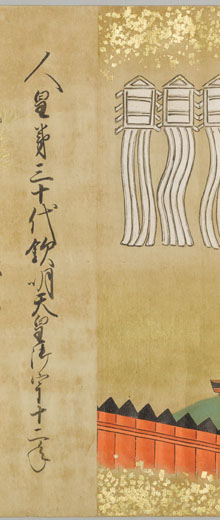 人皇第三十代欽明天皇御宇十二年